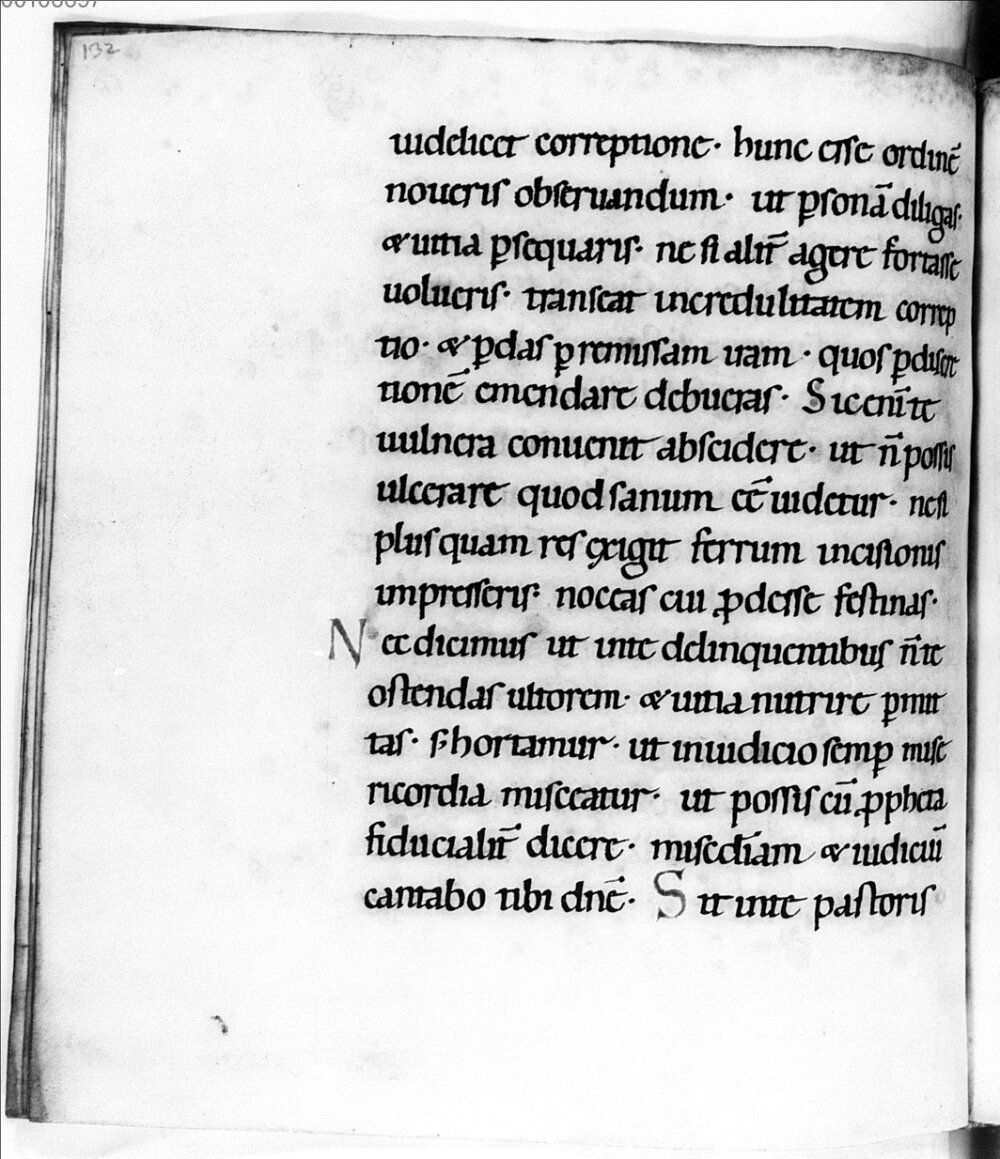 132
iudicet correptione· hunc esse ordinē
noueris obseruandum· ut ꝑsonā diligas·
& uitia ꝑsequaris· ne si alit̄ agere fortasse
uolueris· transeat incredulitatem correp
tio· & ꝑdas ꝑ remissam uam· quos ꝑ discre
tionē emendare debueras· Sic enī te
uulnera conuenit abscidere· ut n̄ possis
ulcerare quod sanum eē uidetur· ne si
plus quam res exigit ferrum incisionis
impresseris· noceas cui ꝓdesse festinas·
Nec dicimus ut inte delinquentibus n̄ te
ostendas ultorem· & uitia nutrire ꝑmit
tas· s· hortamur· ut in iudicio semꝑ mise
ricordia misceatur· ut possis cū ꝓpheta
fiducialit̄ dicere· miscdīam & iudiciū
cantabo tibi dnē· Sit inte pastoris